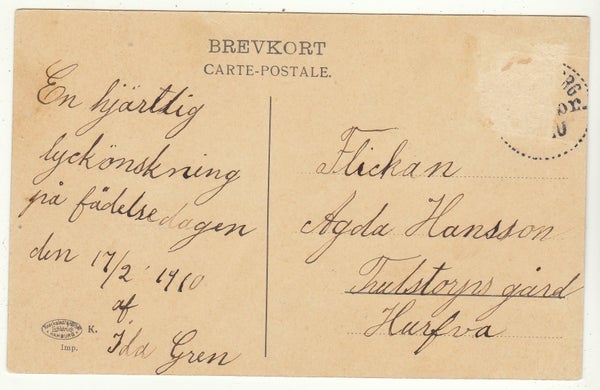 BREVKORT
CARTE-POSTALE.
En hjärtlig
lyckönskning
på födelsedagen
den 17/2 1910
af
Ida Gren
Flickan
Agda Hansson
Trulstorps gård
Hurfva
K.
Imp.
HAMBURG